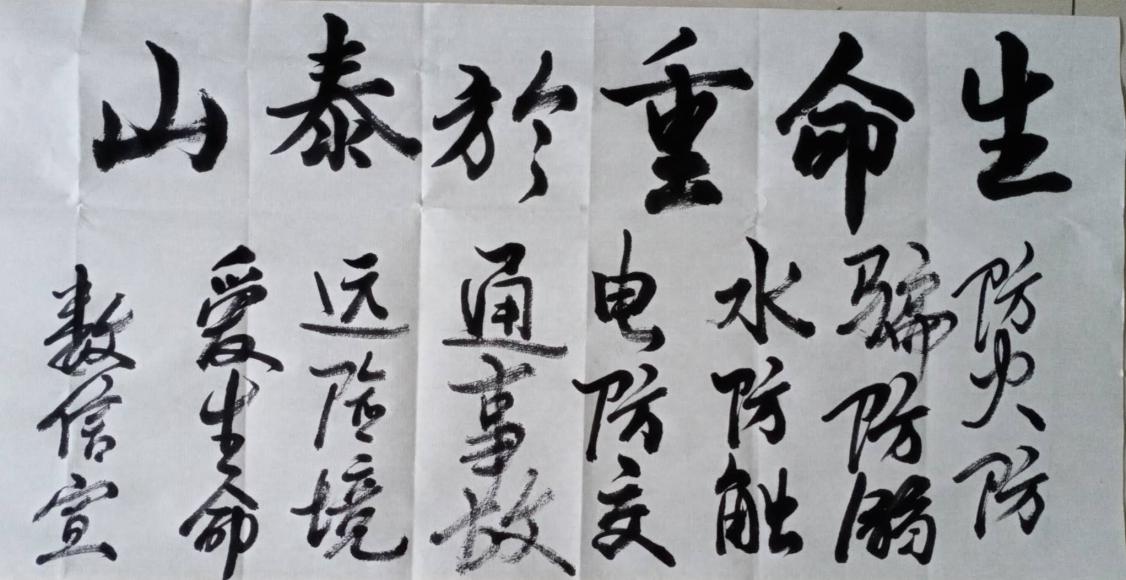 生命重於泰山
防火防
骗防溺
水防触
电防交
通事故
远险境
爱生命
数信宣